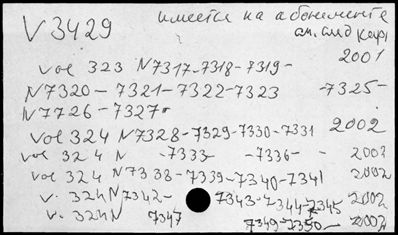 V 3429 имеется на абонементе
2001
vol 323 N7317-7318-7319-
N7320- 7321-7322-7323 -7325-
N7726-7327
vol 324 N7328-7329-7330-7331 2002
vol 324 N -7333- -7336- - 2002
vol 324 N7338-7339-7340-7341 2002
v. 324 N7342- 7343-7344-7345 2002
v. 324 N 7347 7349-7350- 2002